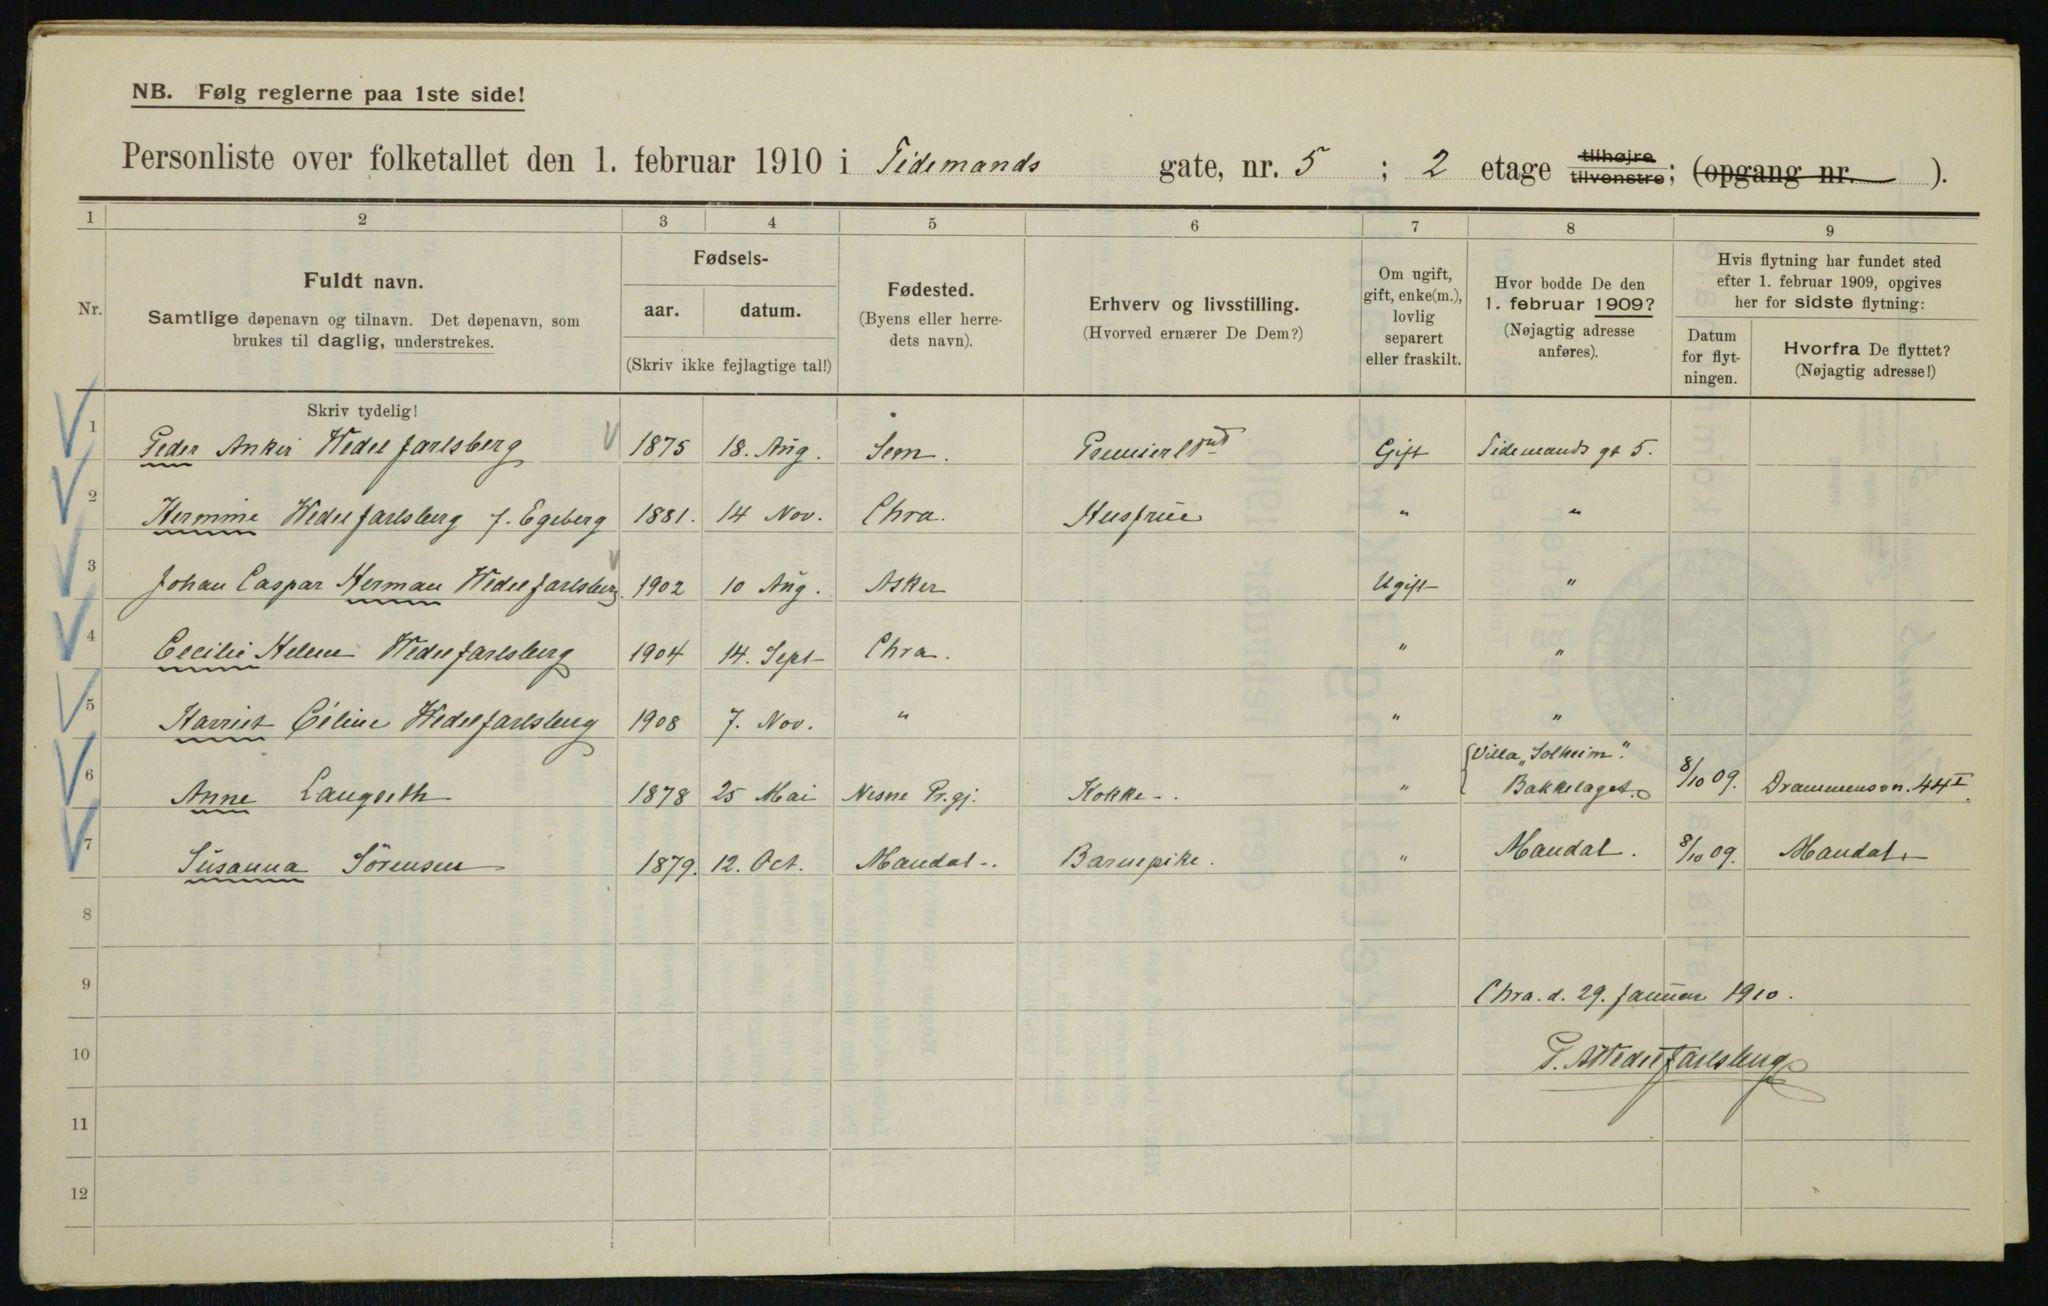 NB. Følg reglerne paa 1ste side!
Personliste over folketallet den 1. februar 1910 i Tidemands gate, nr. 5 ; 2 etage tilhøjre tilvenstre; (opgang nr. ).
1 2 3 4 5 6 7 8 9
Nr.
Fuldt navn.
Samtlige døpenavn og tilnavn. Det døpenavn, som
brukes til daglig, understrekes.
Fødsels-
aar. datum.
(Skriv ikke fejlagtige tal!)
Fødested.
(Byens eller herre-
dets navn).
Erhverv og livsstilling.
(Hvorved ernærer De Dem?)
Om ugift,
gift, enke(m.),
lovlig
separert
eller fraskilt.
Hvor bodde De den
1. februar 1909?
(Nøjagtig adresse
anføres).
Hvis flytning har fundet sted
efter 1. februar 1909, opgives
her for sidste flytning:
Datum
for flyt-
ningen.
Hvorfra De flyttet?
(Nøjagtig adresse!)
Skriv tydelig!
1 Peder Anker Wedel Jarlsberg 1875 18. Aug. Sem. Premierltnt Gift Tidemands gt 5.
2 Hermine Wedel Jarlsberg f. Egeberg 1881. 14 Nov. Chra. Husfrue " "
3 Johan Caspar Herman Wedel Jarlsberg. 1902 10 Aug. Asker Ugift "
4 Cecilie Helene Wedel Jarlsberg 1904 14. Sept Chra. " "
5 Harriet Céline Wedel Jarlsberg 1908 7. Nov. " " "
6 Anne Langseth 1878 25 Mai Nesne Pr.gj. Kokke-. " Villa "Solheim". Bakkelaget. 8/10 09. Drammensvn. 44 I.
7 Susanna Sörensen 1879. 12. Oct. Mandal-. Barnepike. " Mandal. 8/10 09. Mandal
8
9 Chra. d. 29. Januar 1910.
10 P. A Wedel Jarlsberg
11
12